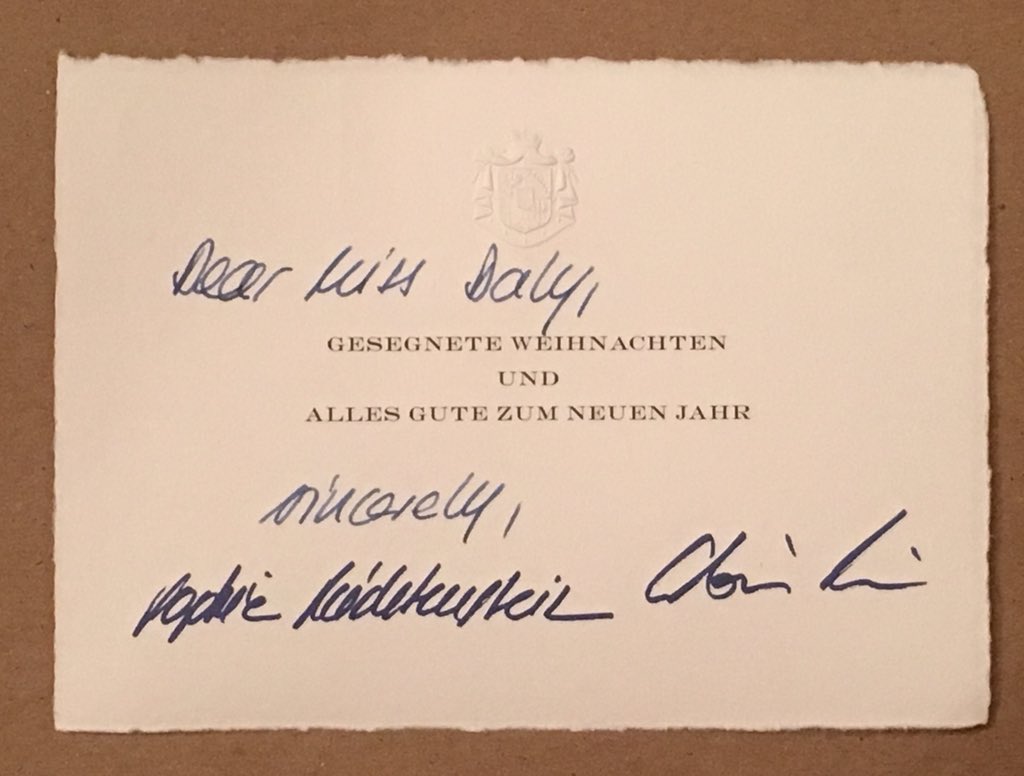 Dear Miss Daly,
GESEGNETE WEIHNACHTEN
UND
ALLES GUTE ZUM NEUEN JAHR
sincerely,
Sophie Liechtenstein